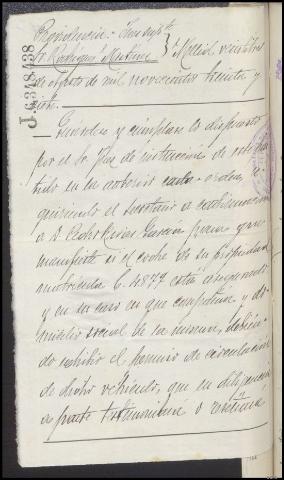 J 6348438
Providencia: Juez
Sr. Rodriguez Martinez } Mellid veintitres
de Agosto de mil novecientos treinta y
Guardese y cumplase lo dispuesto
por el Sr. Juez de instruccion de este par
tido en la anterior carta-orden, re
quiriendo el secretario a continuacion
a D. Pedro García para que
manifieste si el coche de su propiedad
matricula C. 4877 está asegurado
y en su caso en que compañia, y do
micilio social de la misma, debien
do exhibir el permiso de circulacion
de dicho vehiculo, que en diligencia
se testimoniará